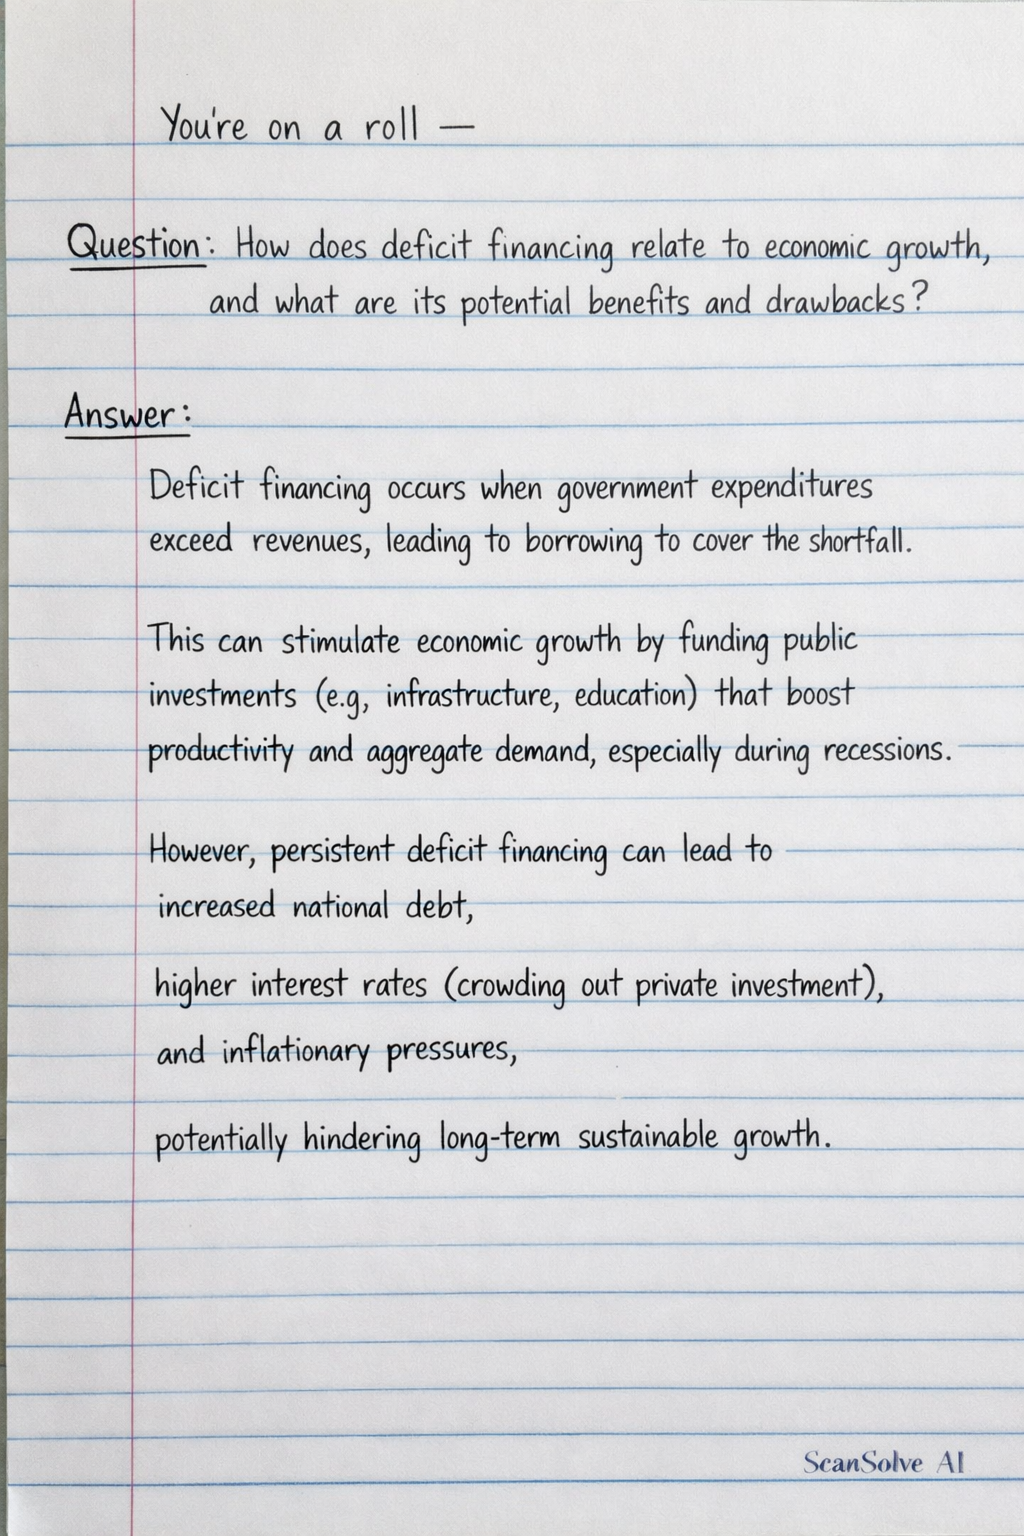 You're on a roll —
Question: How does deficit financing relate to economic growth,
and what are its potential benefits and drawbacks?
Answer:
Deficit financing occurs when government expenditures
exceed revenues, leading to borrowing to cover the shortfall.
This can stimulate economic growth by funding public
investments (e.g, infrastructure, education) that boost
productivity and aggregate demand, especially during recessions.
However, persistent deficit financing can lead to
increased national debt,
higher interest rates (crowding out private investment),
and inflationary pressures,
potentially hindering long-term sustainable growth.
ScanSolve AI